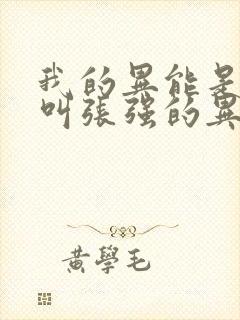 我的異能是
叫張強的異
黃學毛